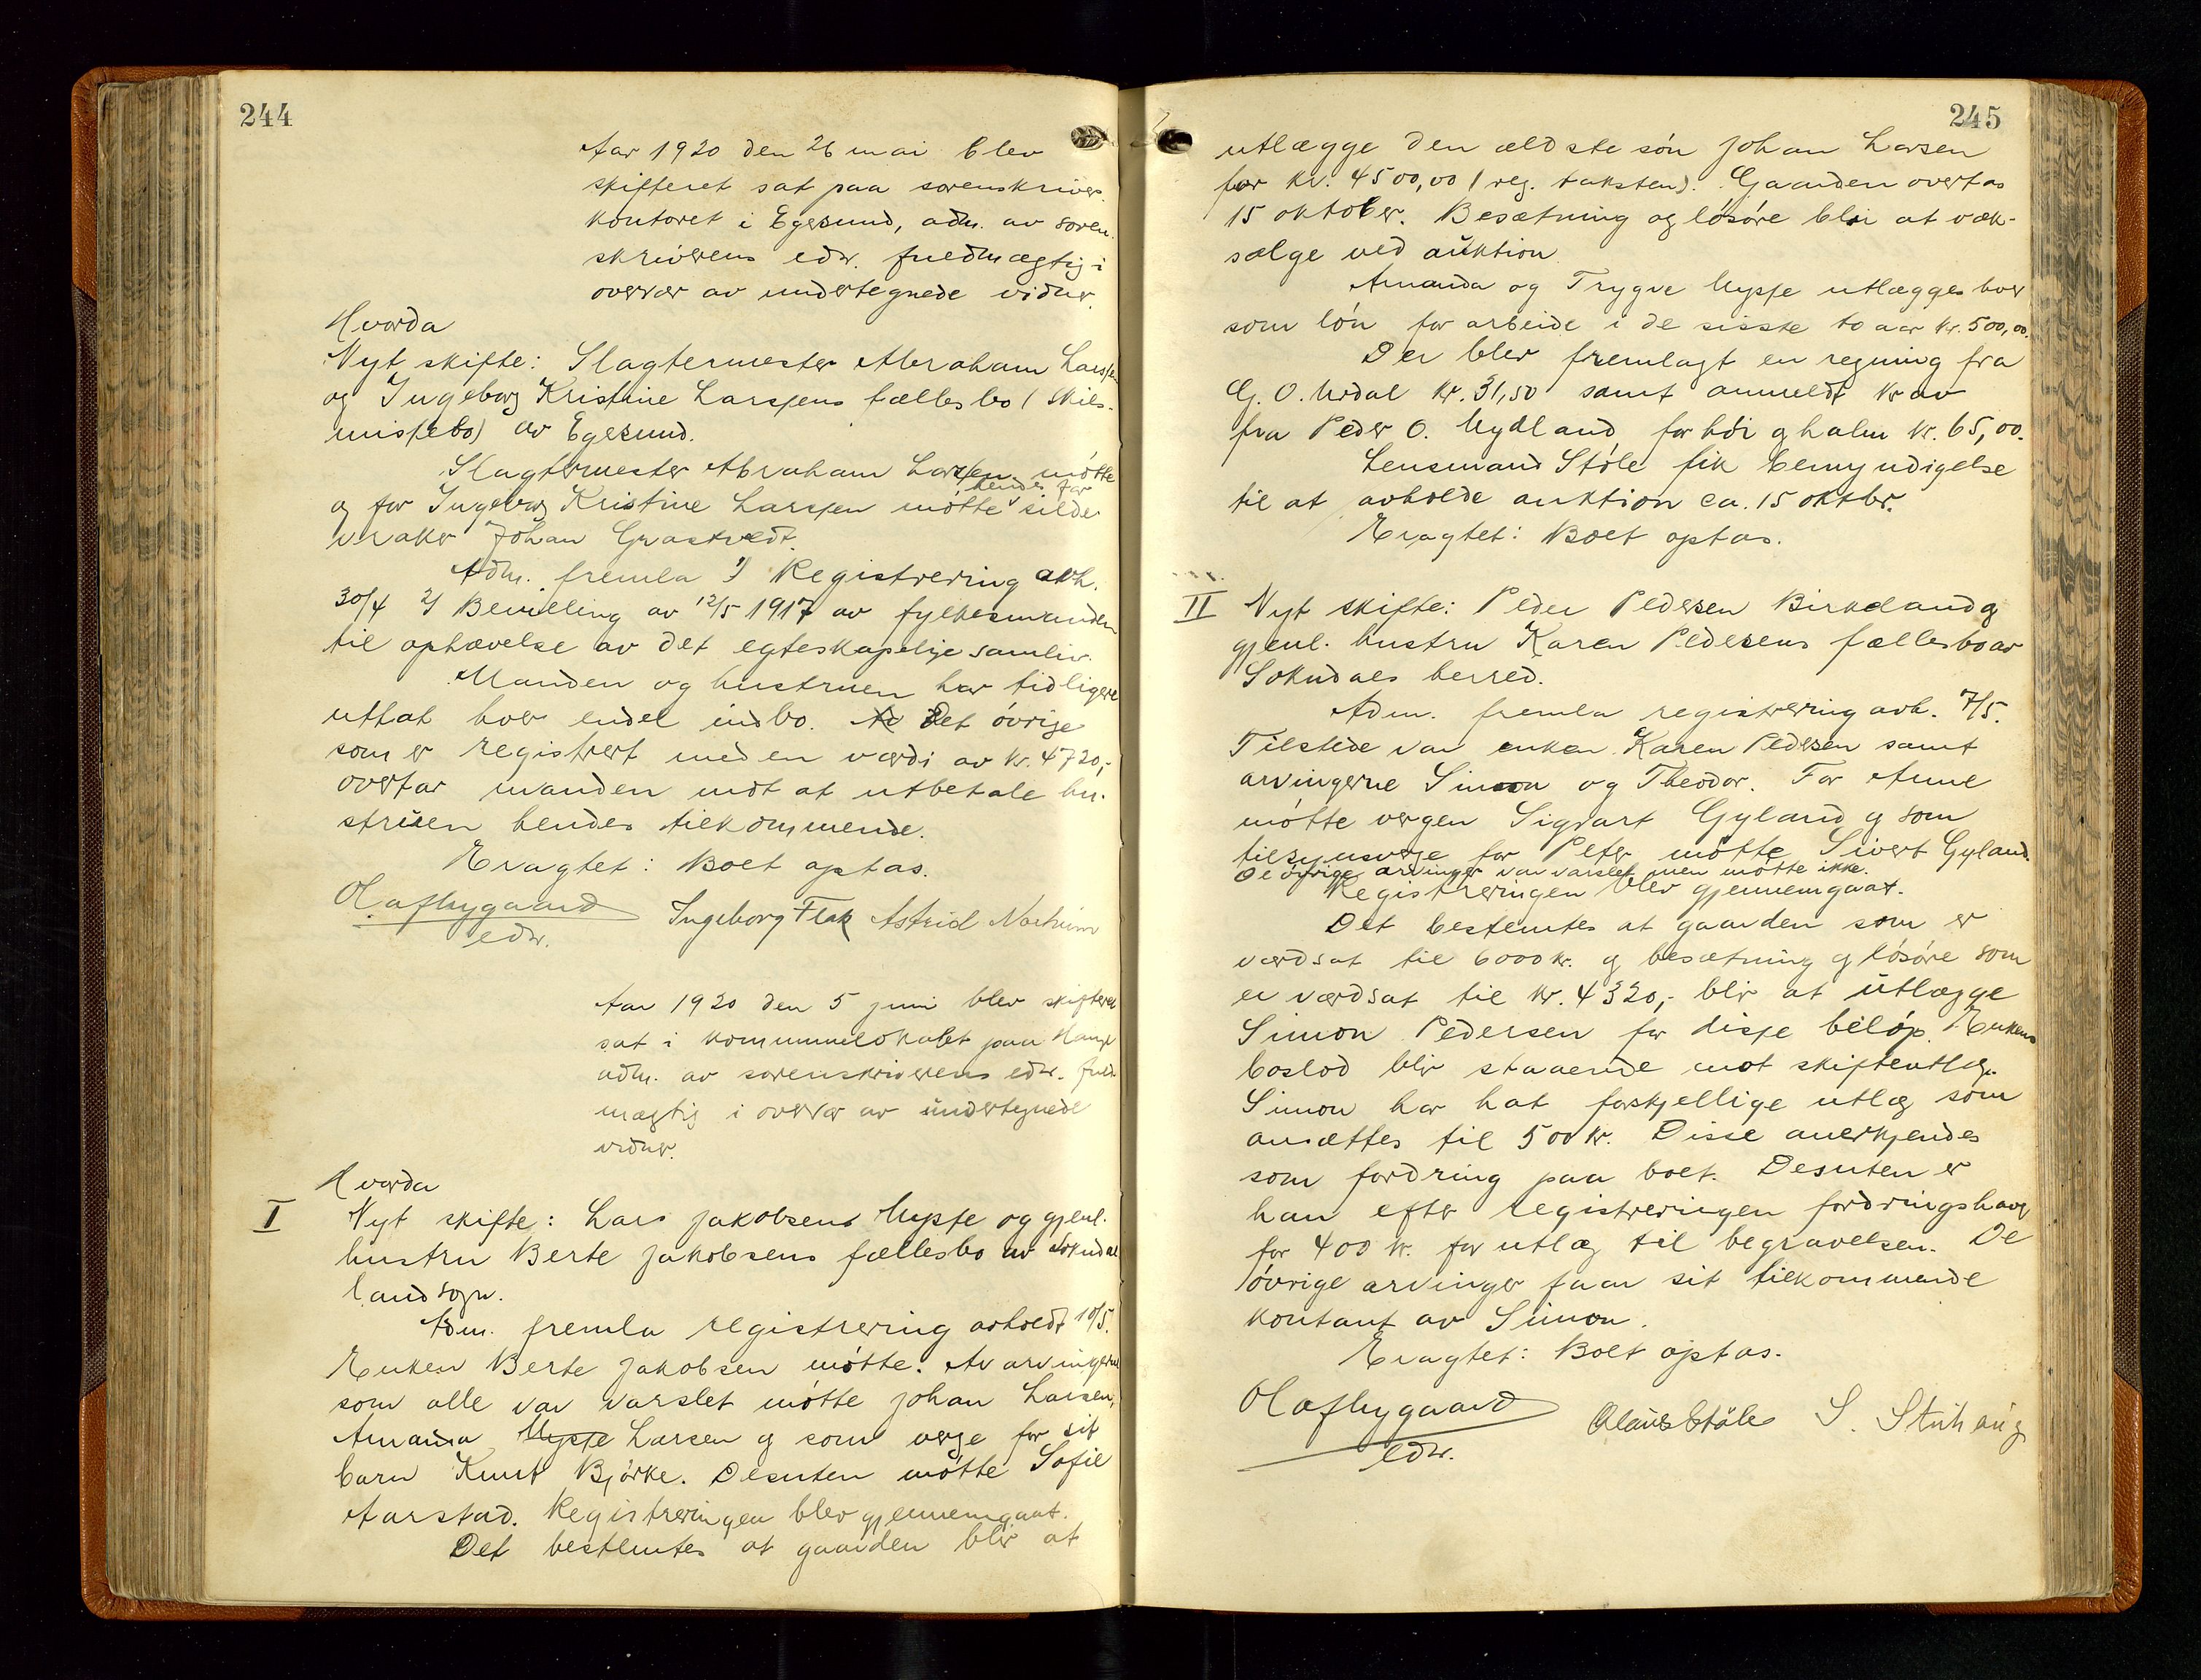 244
Aar 1920 den 26 mai blev
skifteret sat paa sorenskriver-
kontoret i Egersund, adm. av soren-
skriverens edsv. fuldmægtig i
overvær av undertegnede vidner
Hvorda
Nyt skifte: Slagtermester Abraham Larssen
og Ingeborg Kristine Larssens fællesbo (skils-
missebo) av Egersund.
Slagtermester Abraham Larssen møtte
og for Ingeborg Kristine Larssen møtte hendes far silde-
vraker Johan Grastvedt.
Adm. fremla 1) Registrering avh.
30/4 2) Bevilling av 12/5 1917 av fylkesmanden
til ophævelse av det egteskapelige samliv.
Manden og hustruen har tidligere
uttat hver endel indbo. Det øvrige
som er registrert med en værdi av kr. 4720,-
overtar manden mot at utbetale hu-
struen hendes tilkommende.
Eragtet: Boet optas.
Olaf Nygaard
edsv.
Ingeborg Flak Astrid
Aar 1920 den 5 juni blev skifteret
sat i kommunelokalet paa Hauge
adm. av sorenskriverens edsv. fuld-
mægtig i overvær av undertegnede
vidner.
Hvorda
I Nyt skifte: Lars Jakobsens Mysse og gjenl.
hustru Berte Jakobsens fællesbo av Sokndal
landsogn.
Adm. fremla registrering avholdt 10/5.
Enken Berte Jakobsen møtte. Av arvingerne
som alle var varslet møtte Johan Larsen,
Amanda Mysse Larsen og som verge for sit
barn Knut Bjørke. Desuten møtte Sofie
Aarstad. Registreringen blev gjennemgaat.
Det bestemtes at gaarden blir at
245
utlægge den ældste søn Johan Larsen
for kr. 4500,00 (reg. taksten). Gaarden overtas
15 oktober. Besætning og løsøre blir at væk-
sælge ved auktion
Amanda og Trygve Mysse utlægges hver
som løn for arbeide i de sisste to aar kr. 500,00.
Der blev fremlagt en regning fra
G. O. Urdal kr. 31,50 samt anmeldt krav
fra Peder O. Mydland for høi og halm kr. 65,00.
Lensmand Støle fik bemyndigelse
til at avholde auktion ca. 15 oktbr.
Eragtet: Boet optas.
II Nyt skifte: Peder Pedersen Birkeland og
gjenl. hustru Karen Pedersens fællesbo av
Sokndals herred.
Adm. fremla registrering avh. 7/5.
Tilstede var enken Karen Pedersen samt
arvingerne Simon og Theodor. For Anne
møtte vergen Sigvart Gyland og som
tilsynsverge for Peter møtte Sivert Gyland.
De øvrige arvinger var varslet men møtte ikke.
Registreringen blev gjennemgaat.
Det bestemtes at gaarden som er
værdsat til 6000 kr. og besætning og løsøre som
er værdsat til kr. 4320,- blir at utlægge
Simon Pedersen for disse beløp. Enkens
boslod blir staaende mot skifteutlæg.
Simon har hat forskjellige utlæg som
ansættes til 500 kr. Disse anerkjendes
som fordring paa boet. Desuten er
han efter registreringen fordringshaver
for 400 kr. for utlæg til begravelsen. De
øvrige arvinger faar sit tilkommende
kontant av Simon.
Eragtet: Boet optas.
Olaf Nygaard
edsv.
Olaus Støle S.